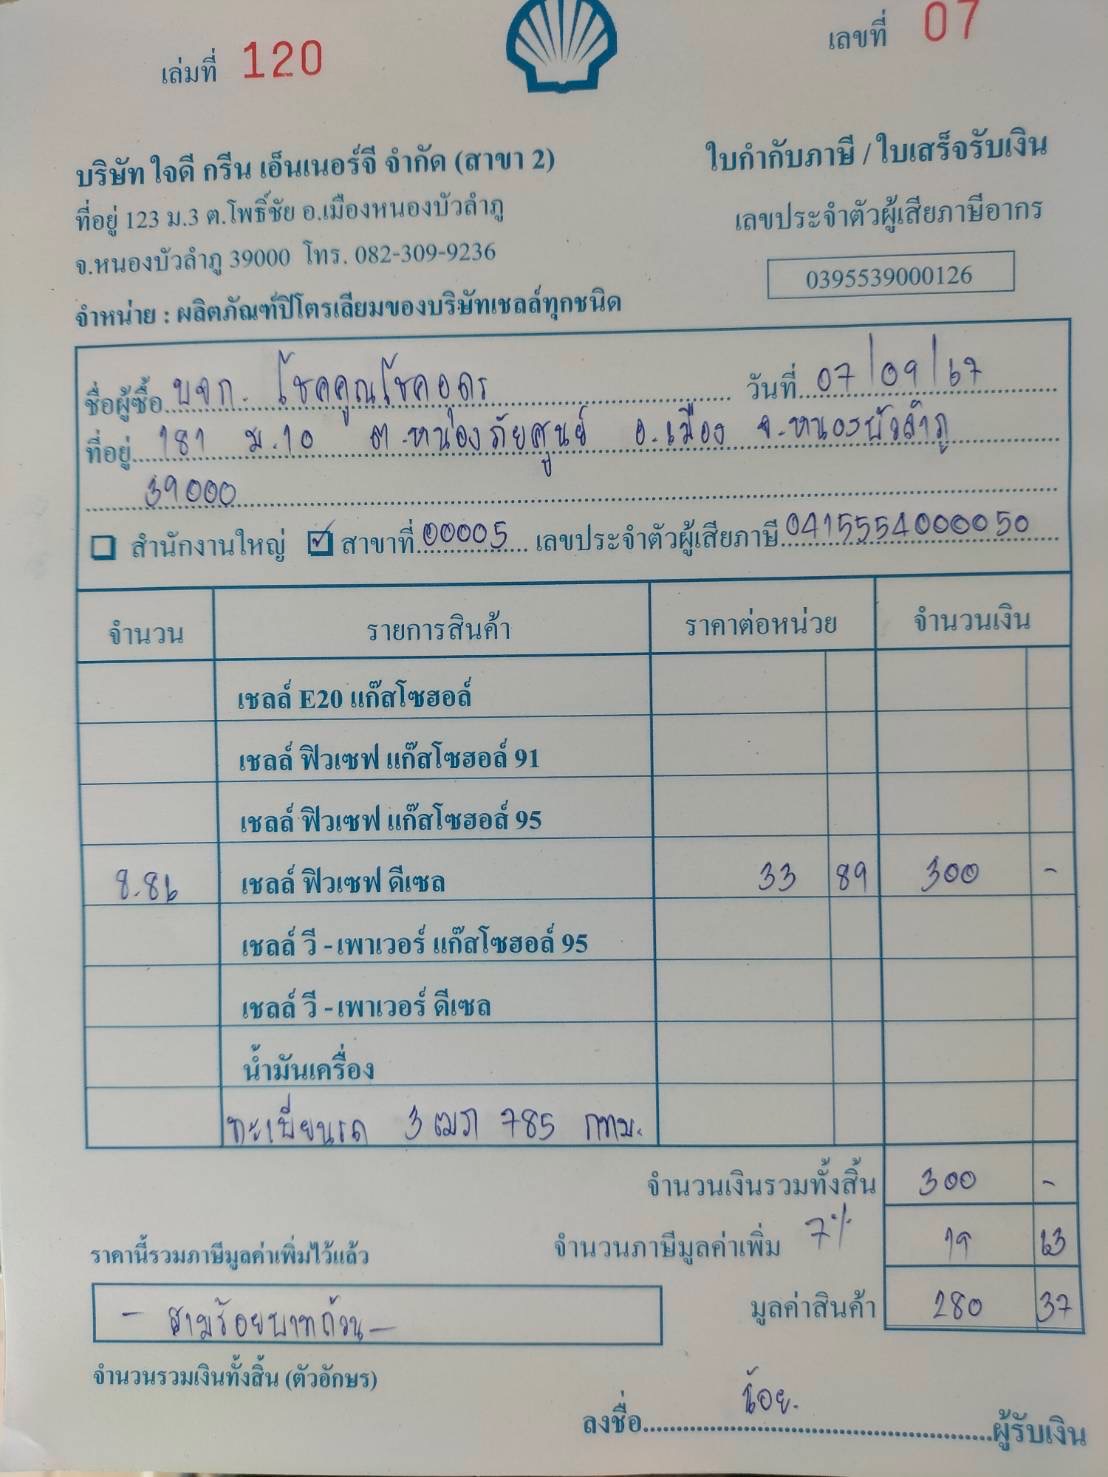 เล่มที่ 120
เลขที่ 07
บริษัท ใจดี กรีน เอ็นเนอร์จี จำกัด (สาขา 2)
ที่อยู่ 123 ม.3 ต.โพธิ์ชัย อ.เมืองหนองบัวลำภู
จ.หนองบัวลำภู 39000 โทร. 082-309-9236
จำหน่าย : ผลิตภัณฑ์ปิโตรเลียมของบริษัทเชลล์ทุกชนิด
ใบกำกับภาษี / ใบเสร็จรับเงิน
เลขประจำตัวผู้เสียภาษีอากร
0395539000126
ชื่อผู้ซื้อ บจก. โชคคูณโชคอดร วันที่ 07/09/67
ที่อยู่ 181 ม.10 ต.หนองภัยศูนย์ อ.เมือง จ.หนองบัวลำภู
39000
สำนักงานใหญ่ สาขาที่ 00005 เลขประจำตัวผู้เสียภาษี 0415554000050
จำนวน รายการสินค้า ราคาต่อหน่วย จำนวนเงิน
เชลล์ E20 แก๊สโซฮอล์
เชลล์ ฟิวเซฟ แก๊สโซฮอล์ 91
เชลล์ ฟิวเซฟ แก๊สโซฮอล์ 95
8.86 เชลล์ ฟิวเซฟ ดีเซล 33 89 300 -
เชลล์ วี - เพาเวอร์ แก๊สโซฮอล์ 95
เชลล์ วี - เพาเวอร์ ดีเซล
น้ำมันเครื่อง
ทะเบียนรถ 785 กทม.
จำนวนเงินรวมทั้งสิ้น 300 -
ราคานี้รวมภาษีมูลค่าเพิ่มไว้แล้ว จำนวนภาษีมูลค่าเพิ่ม 7% 19 63
- สามร้อยบาทถ้วน - มูลค่าสินค้า 280 37
จำนวนรวมเงินทั้งสิ้น (ตัวอักษร)
ลงชื่อ น้อย. ผู้รับเงิน